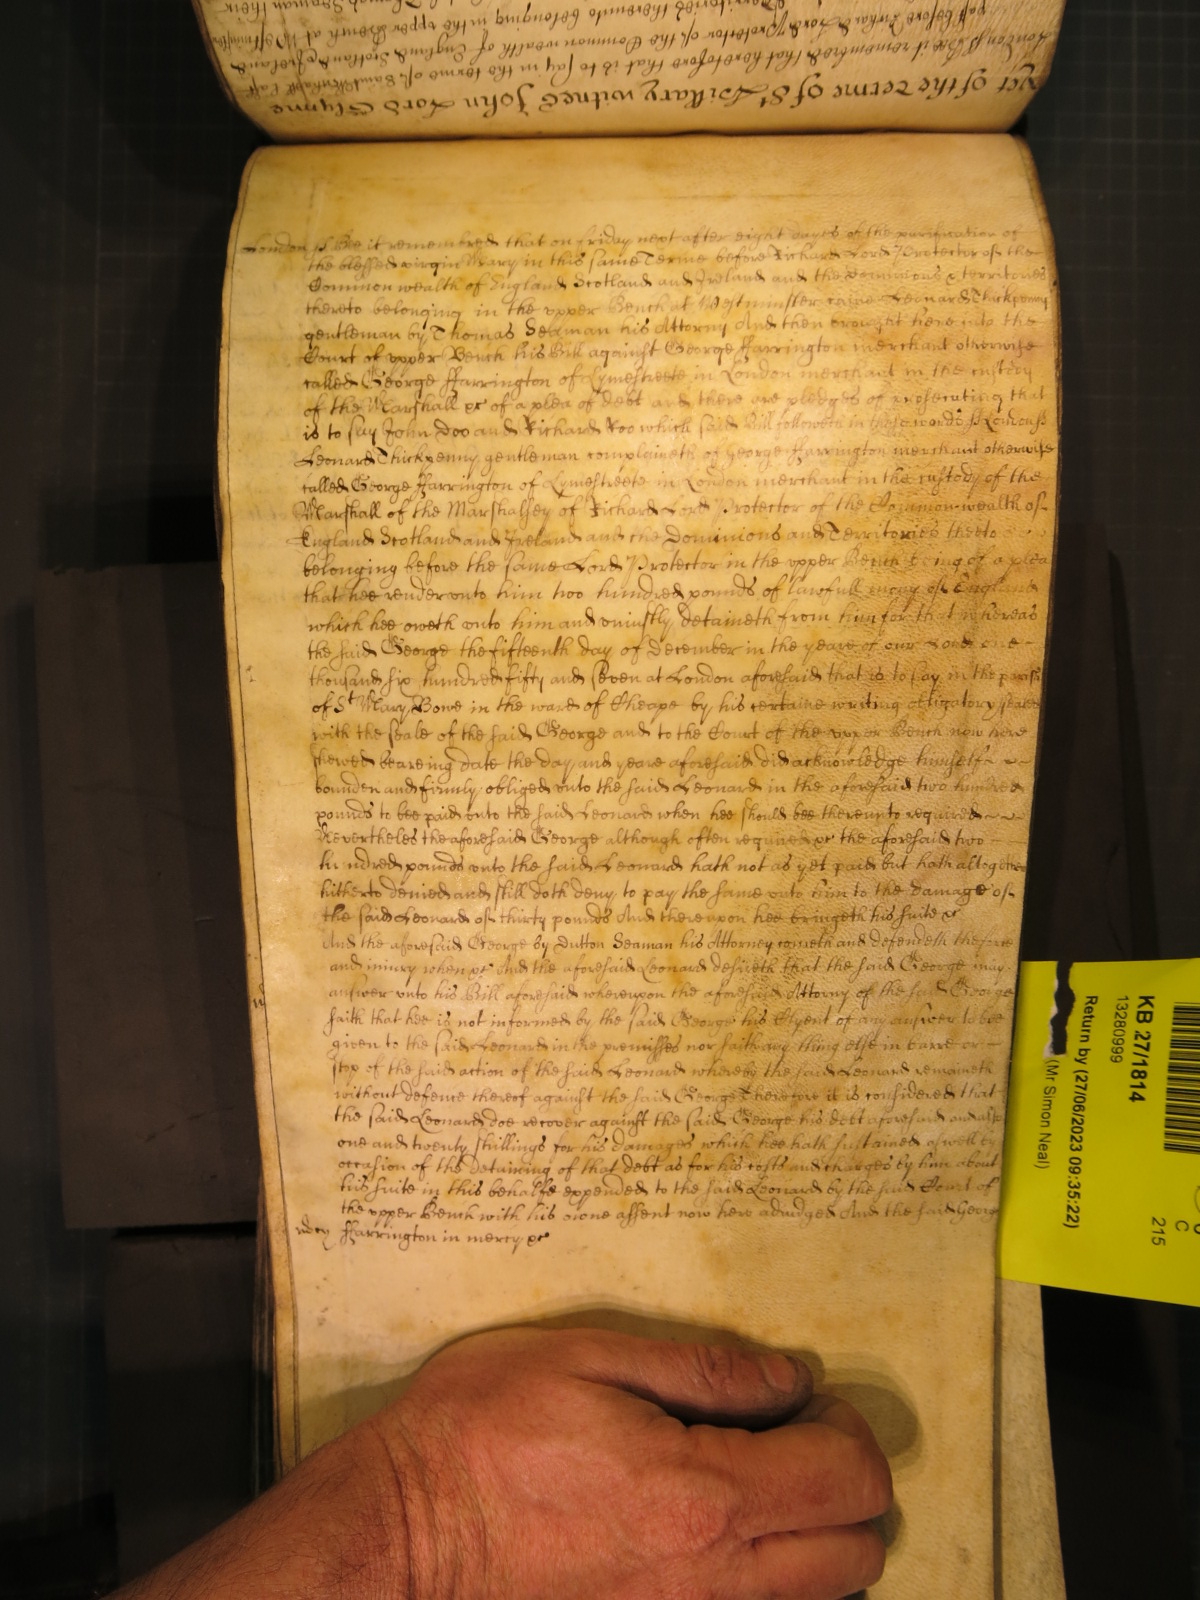 yet of the Terme of St Hillary witnes John Lord Glynne
London ss Bee it remembred that heretofore that is to say in the terme of Saint Michaell last
past before Richard Lord Protector of the Common wealth of England Scotland & Ireland
Territories thereunto belonging in the upper Bench at Westminster
London ss Bee it remembred that on friday next after eight dayes of the purification of
the blessed virgin Mary in this same Terme before Richard Lord Protector of the
Common wealth of England Scotland and Ireland and the dominions & territories
thereto belonging in the upper Bench at Westminster came Leonard Thickpenny
gentleman by Thomas Seaman his Attorny And then brought here into the
Court of upper Bench his Bill against George Harrington merchant otherwise
called George Harrington of Lymestreete in London merchant in the custody
of the Marshall &c of a plea of debt and there are pledges of prosecuting that
is to say John Doo and Richard Roo which said Bill followeth in these words ss London ss
Leonard Thickpenny gentleman complaineth of George Harrington merchant otherwise
called George Harrington of Lymestreete in London merchant in the custody of the
Marshall of the Marshalsey of Richard Lord Protector of the Common-wealth of
England Scotland and Ireland and the Dominions and Territories thereto
belonging before the same Lord Protector in the upper Bench being of a plea
that hee render unto him two hundred pounds of lawfull mony of England
which hee oweth unto him and uniustly detaineth from him for that whereas
the said George the fifteenth day of December in the yeare of our Lord one
thousand six hundred fifty and seven at London aforesaid that is to say in the parish
of St Mary Bowe in the ward of Cheape by his certaine writing obligatory sealed
with the seale of the said George and to the Court of the upper Bench now here
shewed beareing date the day and yeare aforesaid did acknowledge himselfe
bounden and firmly obliged unto the said Leonard in the aforesaid two hundred
pounds to bee paid unto the said Leonard when hee should bee thereunto required
Nevertheles the aforesaid George although often required &c the aforesaid two
hundred pounds unto the said Leonard hath not as yet paid but hath altogether
hitherto denied and still doth deny to pay the same unto him to the damage of
the said Leonard of thirty pounds And thereupon hee bringeth his suite &c
And the aforesaid George by Dutton Seaman his Attorney cometh and defendeth the force
and iniury when &c And the aforesaid Leonard desireth that the said George may
answer unto his Bill aforesaid whereupon the aforesaid Attorny of the said George
saith that hee is not informed by the said George his Clyent of any answer to bee
given to the said Leonard in the premisses nor saith any thing else in barre or
stop of the said action of the said Leonard whereby the said Leonard remaineth
without defence thereof against the said George Therefore it is considered that
the said Leonard doe recover against the said George his debt aforesaid and also
one and twenty shillings for his damages which hee hath sustained aswell by
occasion of the detaining of that debt as for his costs and charges by him about
his suite in this behalfe expended to the said Leonard by the said Court of
the upper Bench with his owne assent now here adiudged And the said George
mercy Harrington in mercy &c
KB 27/1814
13280999
Return by (27/06/2023 09:35:22)
(Mr Simon Neal)
C
215